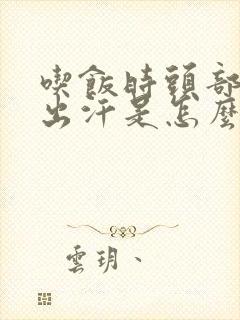 喫飯時頭部
出汗是怎麼
雲玥、